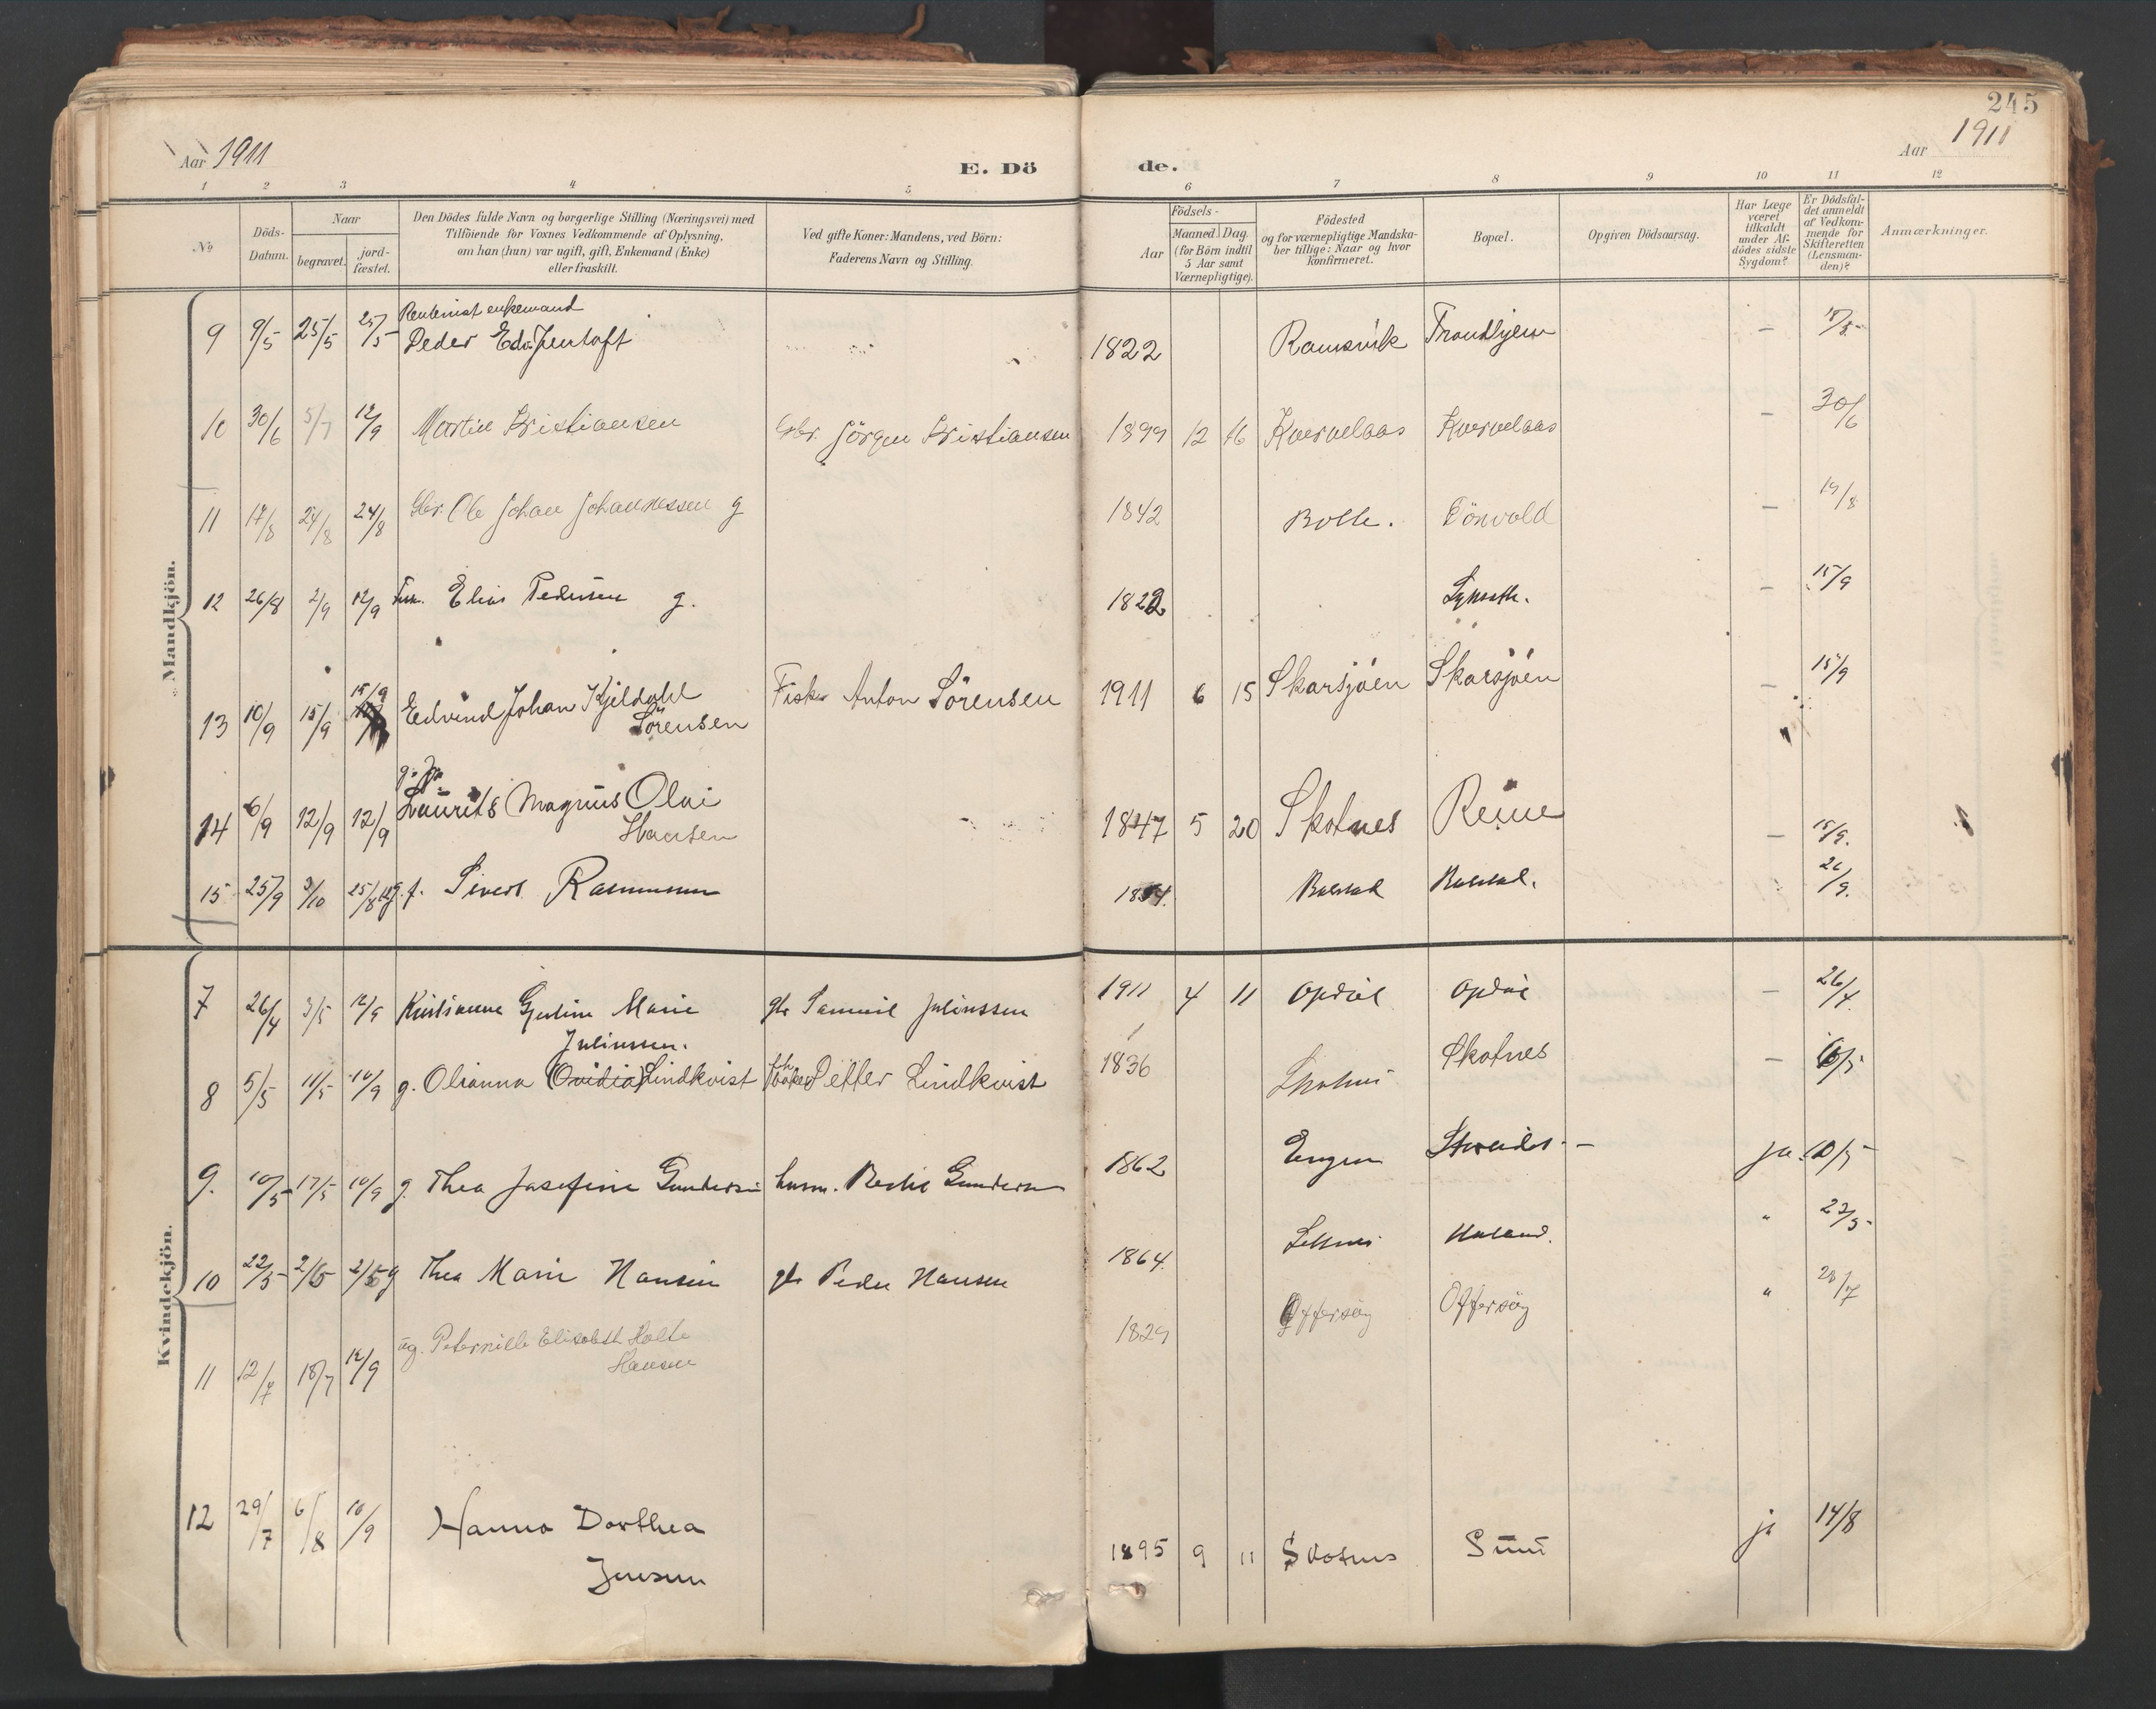 245
Aar 1911
E. Dö
de.
Aar 1911
1 2 3 4 5 6 7 8 9 10 11 12
No
Döds-
Datum.
Naar
begravet.
jord-
fæstet.
Den Dödes fulde Navn og borgerlige Stilling (Næringsvei) med
Tilföiende for Voxnes Vedkommende af Oplysning,
om han (hun) var ugift, gift, Enkemand (Enke)
eller fraskilt.
Ved gifte Koner: Mandens, ved Börn:
Faderens Navn og Stilling.
Födsels-
Aar
Maaned.
Dag.
(for Börn indtil
5 Aar samt
Værnepligtige).
Födested
og for værnepligtige Mandska-
ber tillige: Naar og hvor
konfirmeret.
Bopæl.
Opgiven Dödsaarsag.
Har Læge
været
tilkaldt
under Af-
dödes sidste
Sygdom?
Er Dödsfal-
det anmeldt
af Vedkom-
mende for
Skifteretten
(Lensman-
den)?
Anmærkninger.
Mandkjön.
Rentenist enkemand
9 9/5 25/5 25/5 Peder Edv. Jentoft 1822 Ramsvik Trondhjem –
10 30/6 5/7 12/9 Martin Kristiansen Gbr. Jörgen Kristiansen 1899 12 16 Kvervelaas Kvervelaas – 30/6
11 17/8 24/8 24/8 Gbr. Ole Johan Johannessen g 1842 Bolle. – 19/8
12 26/8 2/9 12/9 Elias Pedersen g. 1822 – 15/9
13 10/9 15/9 15/9 Edvind Johan Kjeldahl Fisker Anton Sörensen 1911 6 15 Skarsjöen Skarsjöen – 15/9
Sörensen
g.
14 6/9 12/9 12/9 Laurits Magnus Olai 1847 5 20 Skotnes Reine – 15/9.
Hansen
15 25/9 3/10 25/8 f. Sivert Rasmussen Balstad Balstad. 26/9.
Kvindekjön.
7 26/4 3/5 12/9 Kristianna Gjertine Marie gbr Samuel Juliussen 1911 4 11 Opdöl Opdöl – 26/4
Juliussen.
8 5/5 11/5 10/9 g. Olianna (Ovidia) Lindkvist Petter Lindkvist 1836 Skotnes Skotnes – 6/5
9. 10/5 17/5 10/9 g. Thea Josefine Gundersen husm. Gundersen 1862 Engen – ja. 10/5
10 22/5 2/6 g Thea Marie Hansen gbr Peder Hansen 1864. Haland. " 22/5
11 12/7 18/7 12/9 ug. Peternille Elisabeth Holte 1829 Offersöy Offersöy " 20/7
Hansen
12 29/7 6/8 10/9 Hanna Dorthea 1895 9 11 Skotnes Sund ja 14/8
Jensen